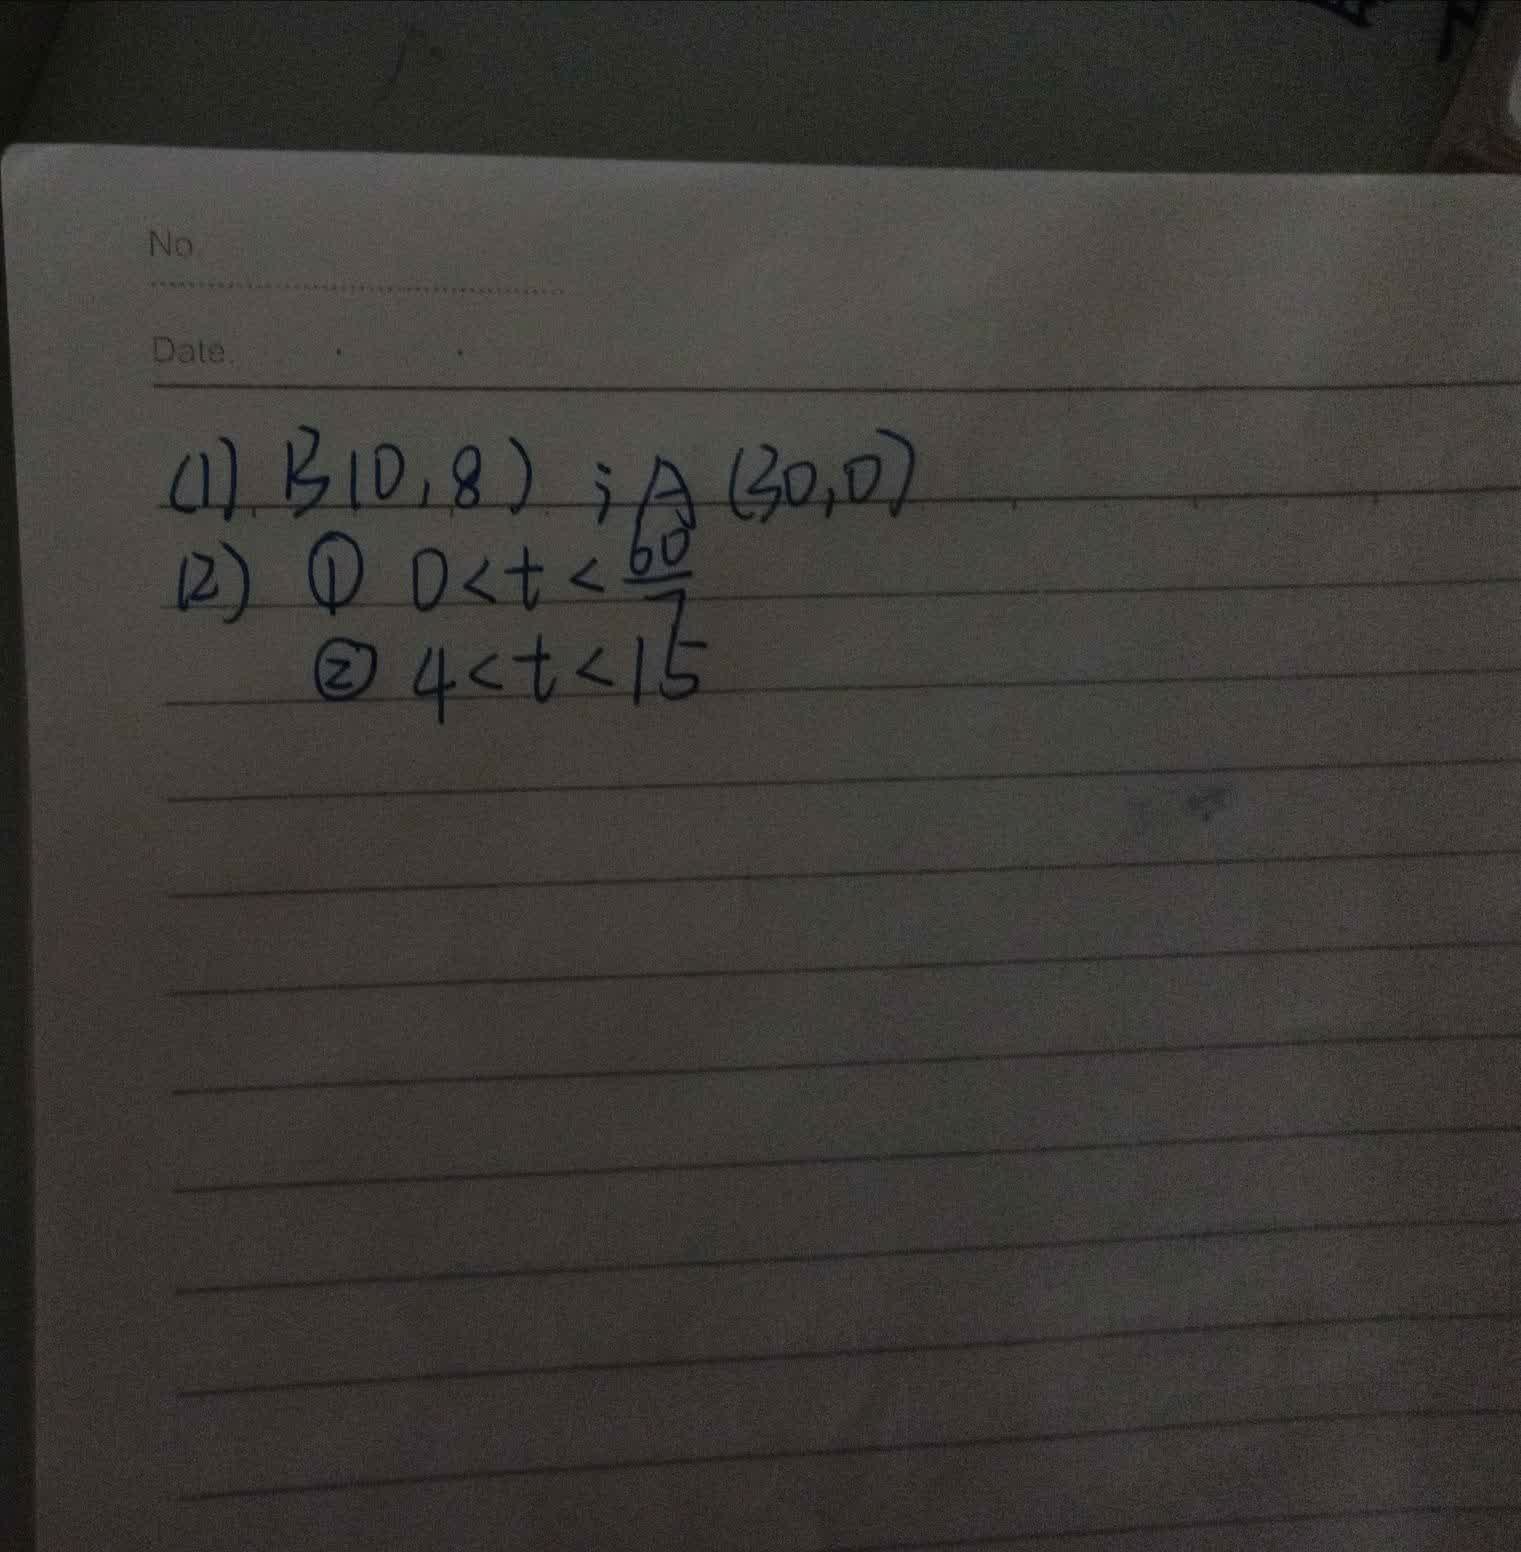 No.
Date.
(1) B(0,8) ; A(30,0)
(2) ① 0<t<60/7
② 4<t<15